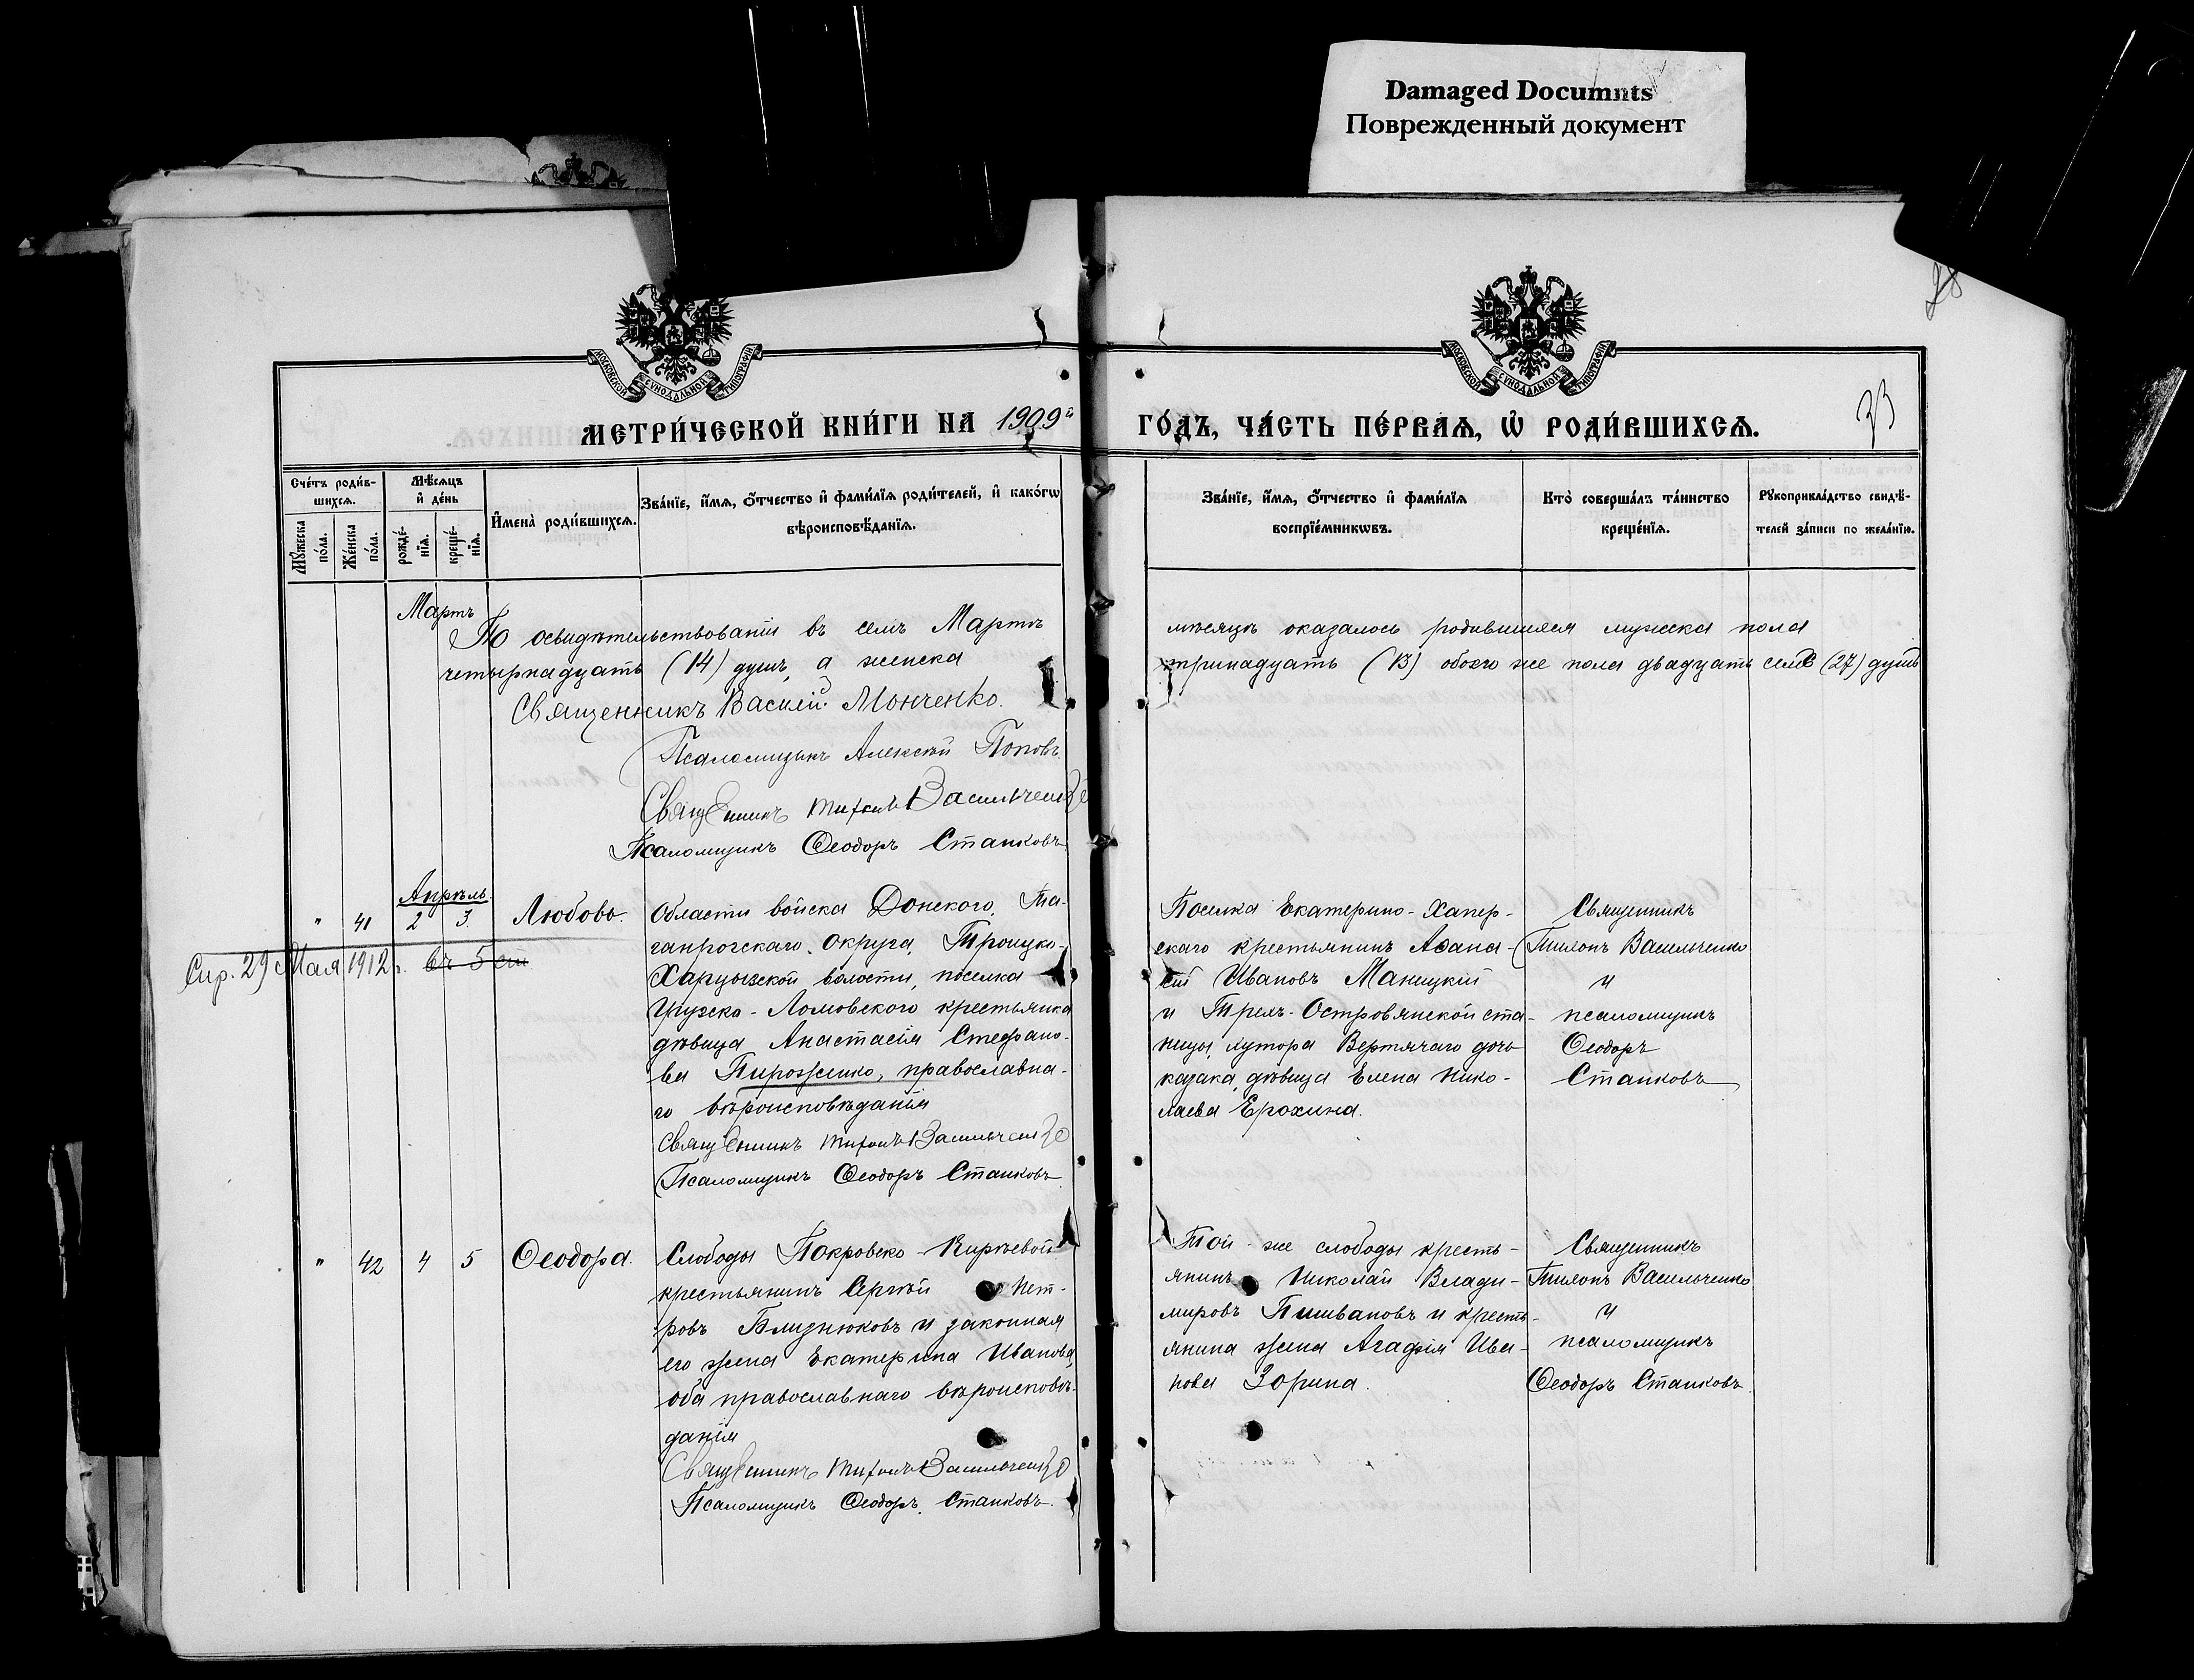 Damaged Documnts
Поврежденный документ
МОСКОВСКОЙ СѴНОДАЛЬНОЙ ТИПОГРАФІИ
МОСКОВСКОЙ СѴНОДАЛЬНОЙ ТИПОГРАФІИ
МЕТРИ́ЧЕСКОЙ КНИ́ГИ НА 1909й
ГО́ДЪ, ЧА́СТЬ ПЕ́РВАѦ, Ѡ҆ РОДИ́ВШИХСѦ.
33
Сче́тъ роди́в-
шихсѧ.
Мꙋ́жеска
по́ла.
Же́нска
по́ла.
Мѣ́сѧцъ
и҆ де́нь
рожде́-
нїѧ.
креще́-
нїѧ.
И҆мена̀ роди́вшихсѧ.
Зва́нїе, и҆́мѧ, ѻ҆́тчество и҆ фами́лїѧ роди́телей, и҆ како́гѡ
вѣроисповѣ́данїѧ.
Зва́нїе, и҆́мѧ, ѻ҆́тчество и҆ фами́лїѧ
воспрїе́мникѡвъ.
Кто̀ соверша́лъ та́инство
креще́нїѧ.
Рꙋкоприкла́дство свидѣ́-
телей за́писи по жела́нїю.
Мартъ
По освидѣтельствованіи въ семъ Мартѣ
четырнадцать (14) душъ, а женска
Священникъ Василій Монченко.
Псаломщикъ Алексѣй Поповъ
Священникъ Тихонъ Васильченко
Псаломщикъ Ѳеодоръ Станковъ
мѣсяцѣ оказалось родившихся мужска пола
тринадцать (13) обоего же пола двадцать семь (27) душъ
Апрѣль.
" 41 2 3. Любовь.
Спр. 29 Мая 1912 г.
Области войска Донского, Та-
ганрогскаго округа, Троицко-
Харцызской волости, поселка
Грузско-Ломовского крестьянка
дѣвица Анастасія Стефано-
ва Пироженко, православна-
го вѣроисповѣданія
Священникъ Тихонъ Васильченко
Псаломщикъ Ѳеодоръ Станковъ
Поселка Екатерино-Хапер-
скаго крестьянинъ Аѳана-
сій Ивановъ Маницкій
и Трехъ-Островянской ста-
ницы, хутора Вертячаго дочь
казака, дѣвица Елена Нико-
лаева Ерохина.
Священникъ
Тихонъ Васильченко
и
псаломщикъ
Ѳеодоръ
Станковъ
" 42 4 5 Ѳеодора.
Слободы Покровско-Кирѣевой
крестьянинъ Сергѣй Пет-
ровъ Близнюковъ и законная
его жена Екатерина Иванова,
оба православнаго вѣроисповѣ-
данія
Священникъ Тихонъ Васильченко
Псаломщикъ Ѳеодоръ Станковъ.
Той же слободы кресть-
янинъ Николай Влади-
мировъ Пишвановъ и кресть-
янина жена Агафія Ива-
нова Зорина.
Священникъ
Тихонъ Васильченко
и
псаломщикъ
Ѳеодоръ Станковъ